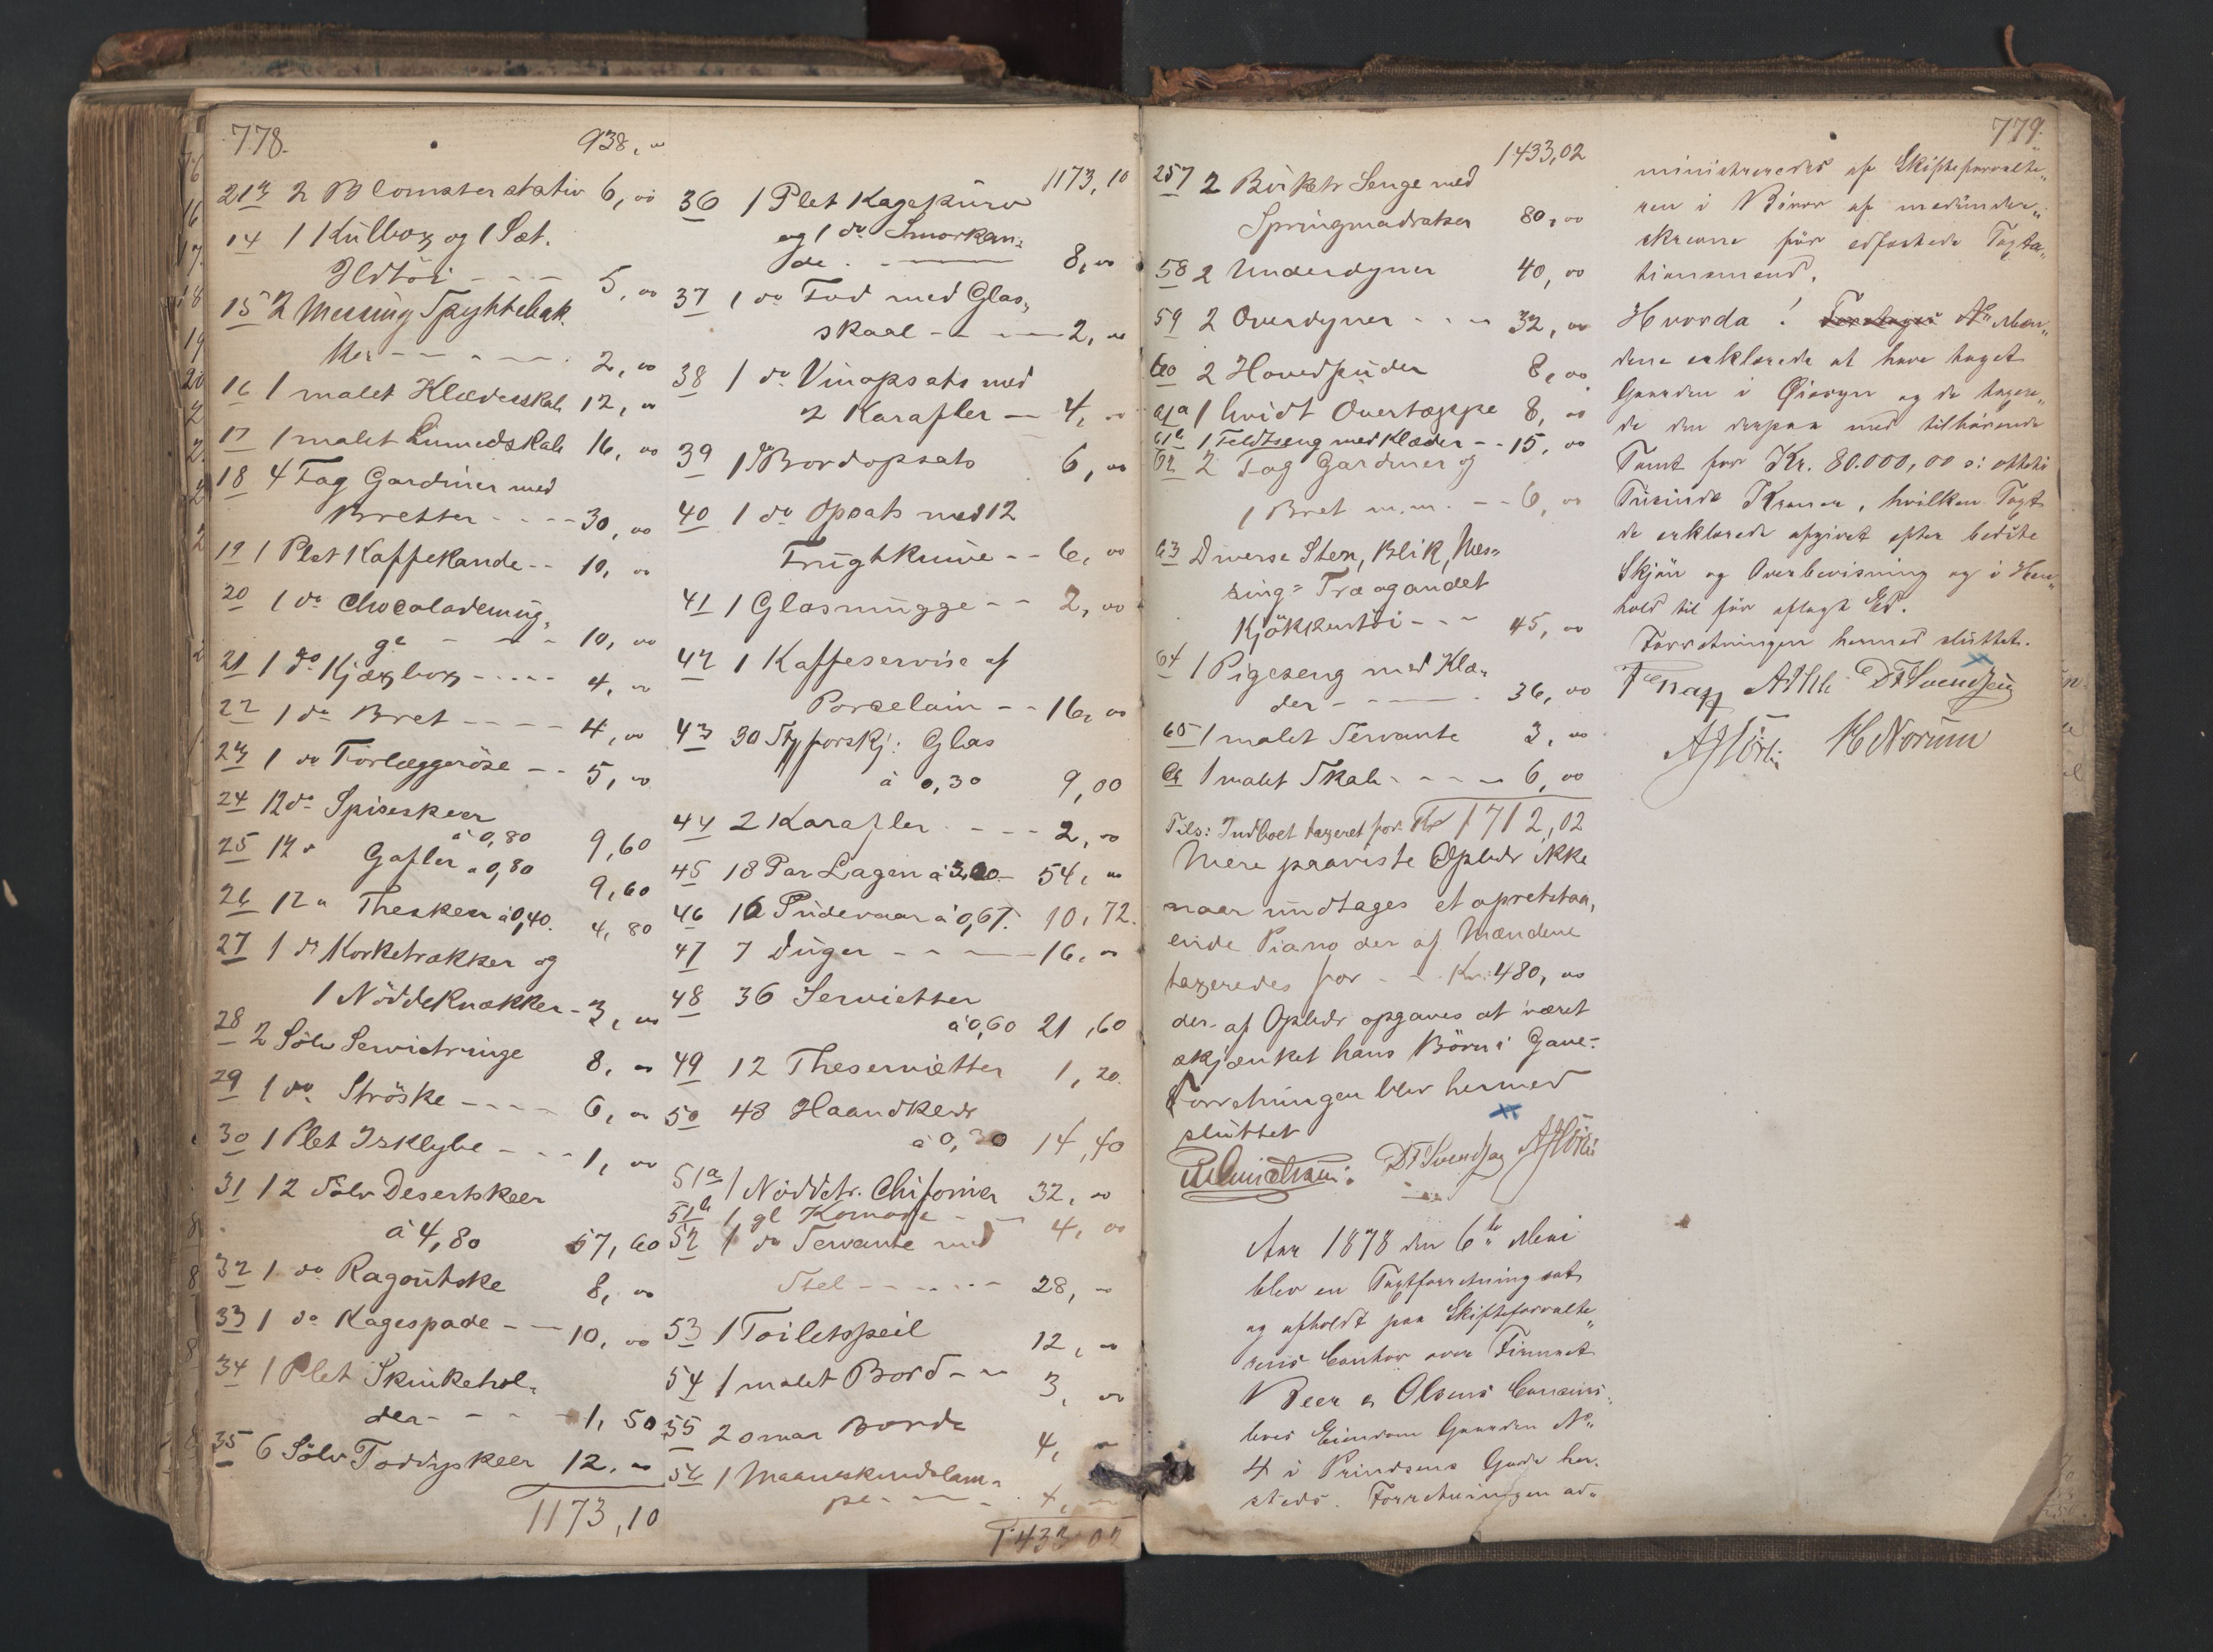 778.
938, "
213 2 Blomsterstativ 6, 00
14 1 Kulbox og 1 Sæt.
Ildtöi - - - 5, 00
15 2 Messing Spyttebak
ker - - - - 2, 00
16 1 malet Klædesskab 12, 00
17 1 malet Linnedskab 16, 00
18 4 Fag Gardiner med
Bretter - - - - 30, 00
19 1 Plet Kaffekande - - 10, 00
20 1 do Chocolademug,
ge - - - 10, 00
21 1 do Kjæxbox - - - - - 4, 00
22 1 do Bret - - - - 4, 00
23 1 do Forlæggeröse - - 5, 00
24 12 do Spiseskeer
à 0,80 9,60
25 12 " Gafler " 0,80 9,60
26 12 " Theskeer à 0,40. 4, 80
27 1 do Korketrækker og
1 Nöddeknækker - 3, 00
28 2 Sölv Servietringe 8, 00
29 1 do Ströske - - - - 6, 00
30 1 Plet Isklybe - - - 1, 00
31 12 Sölv Desertskeer
à 4,80 57, 60
32 1 do Ragoutske 8, 00
33 1 do Kagespade - - 10, 00
34 1 Plet Skinkehol-
der - - - - 1, 50
35 6 Sölv Toddyskeer 12, 00
1173,10
1173, 10
36 1 Plet Kagekurv
og 1 do Smorkan-
de . - 8, 00
37 1 do Fad med Glas,
skaal - - - 2, 00
38 1 do Vinopsats med
2 Karafler - 4, 00
39 1 do Bordopsats 6, 00
40 1 do Opsats med 12
Frugtknive - - 6, 00
41 1 Glasmugge - - 2, 00
42 1 Kaffeservise af
Porcelain - - 16, 00
43 30 Stk forskj: Glas
à 0,30 9,00
44 2 Karafler - - - 2, 00
45 18 Par Lagen à 3,00 - 54, 00
46 16 Pudevaar à 0,67. 10, 72.
47 7 Duger - - - 16, 00
48 36 Servietter
à 0,60 21,60
49 12 Theservietter 1, 20.
50 48 Haandklæder
à 0,30 14,40
51a 1 Nöddetr. Chifonier 32, 00
51b 1 gl Komode - - 4, 00
52 1 do Servante med
Stel - - - - - 28, 00
53 1 Toiletspeil 12, 00
54 1 malet Bord - - 3, 00
55 2 smaa Borde 4, 00
56 1 Maaneskindslam-
pe - - - 4, 00
1433 02
1433,02
257 2 Birketr Senge med
Springmadratser 80, 00
58 2 Underdyner 40, 00
59 2 Overdyner - - - 32, 00
60 2 Hovedpuder 8, 00
61a 1 hvidt Overtæppe 8, 00
61b 1 Feldtseng med Klæder - - 15, 00
62 2 Fag Gardiner og
1 Bret m.m. - - 6, 00
63 Diverse Sten, Blik, Mes-
sing- Træ og andet
Kjökkentöi - - - 45, 00
64 1 Pigeseng med Klæ-
der - - - 36, 00
65 1 malet Servante 3, 00
66 1 malet Skab - - - - 6, 00
Tils: Indboet taxeret for Kr 1712,02
Mere paaviste Opbudr ikke
naar undtages et opretstaa,
ende Piano der af Mændene
taxeredes for - - Kr: 480, 00
der af Opbdr opgaves at været
skjænket hans Börn i Gave.
Forretningen blev hermed
sluttet
DFSvendsen AHörbi
Aar 1878 den 6te Mai
blev en Taxtforretning sat
og afholdt paa Skifteforvalte
rens Contor over Firmaet
Beer & Olsens Concurs
boes Eiendom Gaarden No
4 i Prindsens Gade her-
steds. Forretningen ad-
779.
ministreredes af Skifteforvalte,,
ren i Nærvær af medunder,,
skrevne för edfæstede Taxta,,
tionsmænd.
Hvorda! Foretages No Mæn,,
dene erklærede at have taget
Gaarden i Öiesyn og de taxere,,
de den derpaa med tilhörende
Tomt for Kr. 80.000,00 o: otteti
Tusinde Kroner, hvilken Taxt
de erklærede afgivet efter bedste
Skjön og Overbevisning og i Hen,,
hold til för aflagt Ed.
Forretningen hermed sluttet.
DFSvendsen
AHörbi HNorum